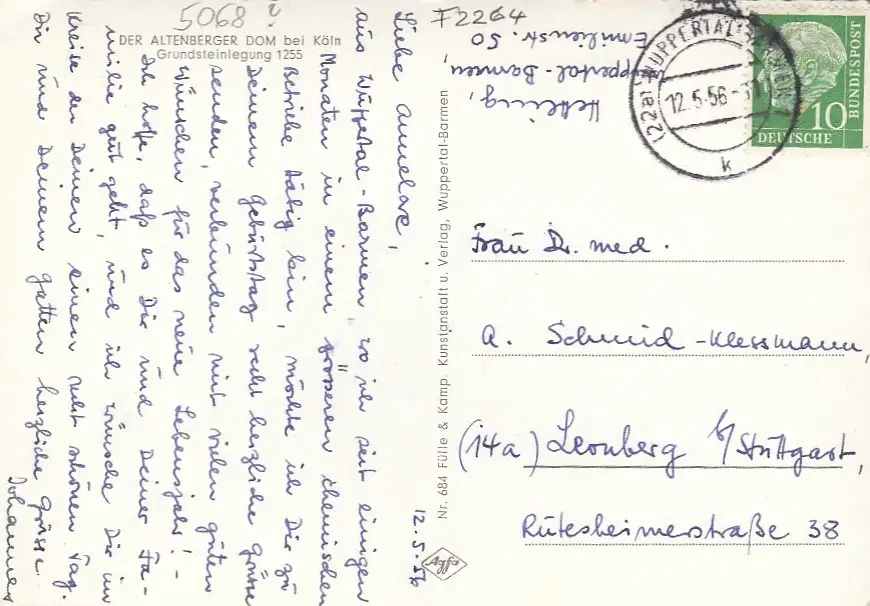 5068
F2264
DER ALTENBERGER DOM bei Köln
Grundsteinlegung 1255
12.5.56
Liebe Annelore,
aus Wuppertal-Barmen, wo ich seit einigen
Monaten in einem grösseren chemischen
Betriebe tätig bin, möchte ich Dir zu
Deinem Geburtstag recht herzliche Grüsse
senden, verbunden mit vielen guten
Wünschen für das neue Lebensjahr! –
Ich hoffe, daß es Dir und Deiner Fa-
milie gut geht, und ich wünsche Dir im
Kreise der Deinen einen recht schönen Tag.
Dir und Deinem Gatten herzliche Grüsse
Johannes
Nr. 684 Fülle & Kamp, Kunstanstalt u. Verlag, Wuppertal-Barmen
Agfa
Wuppertal-Barmen,
Emilienstr. 50
(22a) WUPPERTAL-BARMEN
12.5.56
k
10
DEUTSCHE
BUNDESPOST
Frau Dr. med.
A. Schmid-Klessmann,
(14a) Leonberg b/Stuttgart,
Rutesheimerstraße 38